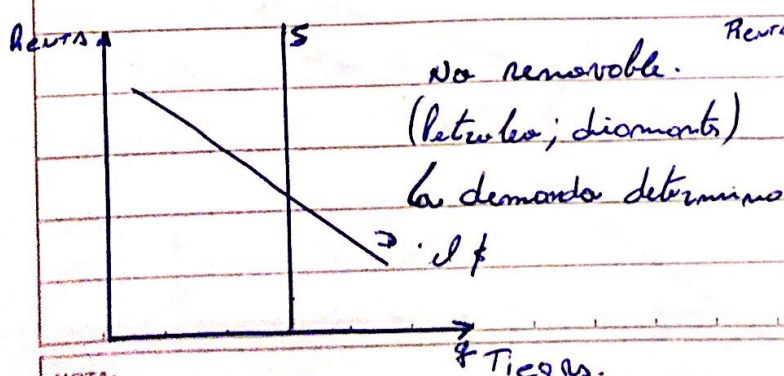 Renta
S
Renta
No renovable.
(Petroleo; diamants)
La demanda determina
el $
D
q Tierra.
NOTA: